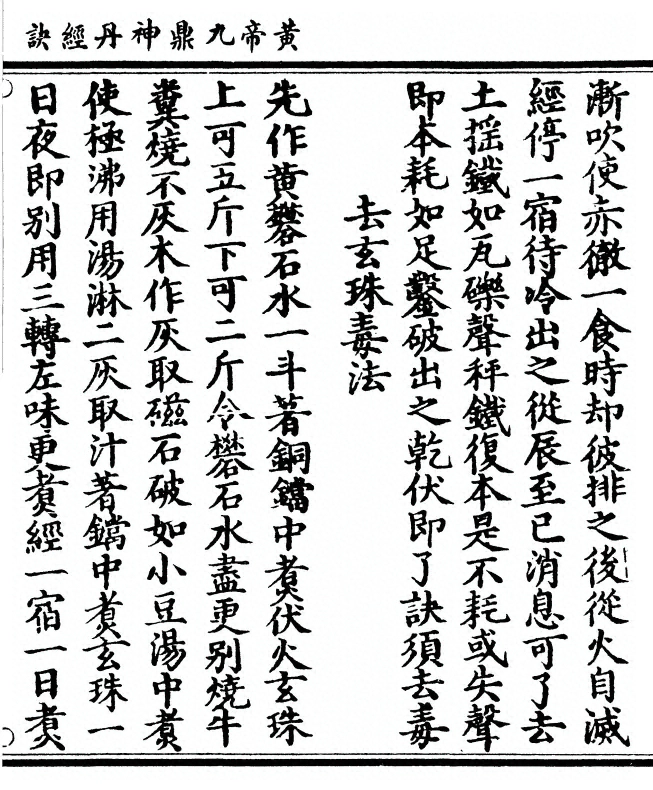 黃帝九鼎神丹經訣
漸吹使赤徹一食時却彼排之後從火自滅
經停一宿待冷出之從辰至巳消息可了去
土揺鐵如瓦礫聲秤鐵復本是不耗或失聲
即本耗如足鑿破出之乾伏即了訣須去毒
去玄珠毒法
先作黃礬石水一斗著銅鐺中煮伏火玄珠
上可五斤下可二斤令礬石水盡更別燒牛
糞燒不灰木作灰取磁石破如小豆湯中煮
使極沸用湯淋二灰取汁著鐺中煮玄珠一
日夜即別用三轉左味更煮經一宿一日煮